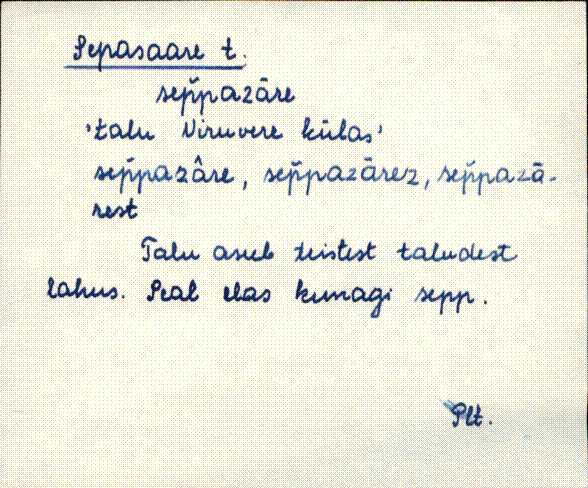 Sepasaare t.
sep̆pazāre
'talu Viruvere külas'
sep̆pazâre, sep̆pazārez, sep̆pazā-
rest
Talu asub teistest taludest
lahus. Seal elas kunagi sepp.
Plt.